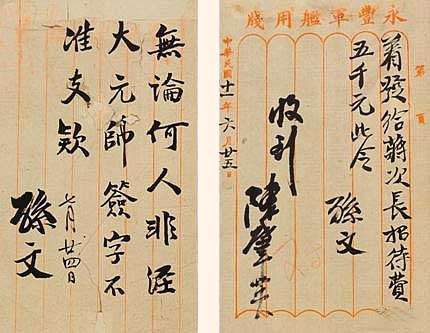 永豐軍艦用牋
第 頁
着發給蔣次長招待費
五千元此令
孫文
收到
陳肇英
中華民國十一年六月廿五日
無論何人非經
大元帥簽字不
准支款
七月廿四日
孫文